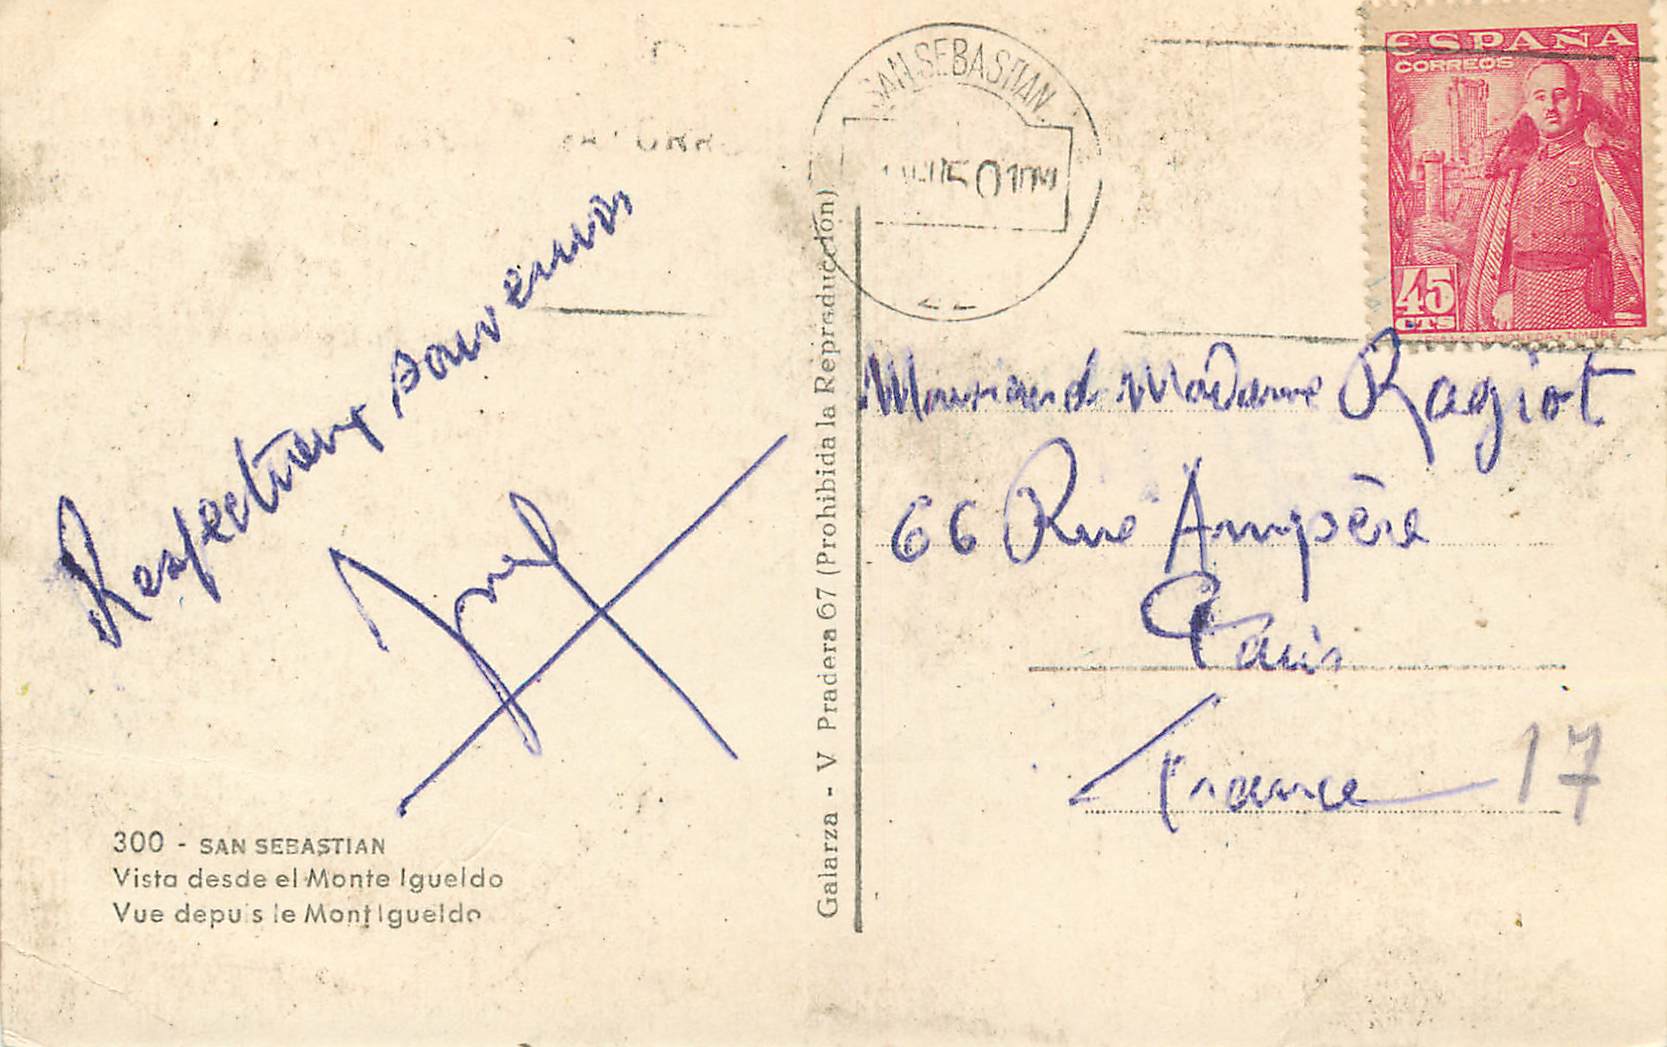 SAN SEBASTIAN
ESPAÑA
CORREOS
45
CTS
Respectueux souvenirs
Monsieur et Madame Ragiot
66 Rue Ampère
Paris
France 17
300 - SAN SEBASTIAN
Vista desde el Monte Igueldo
Vue depuis le Mont Igueldo
Galarza - V Pradera 67 (Prohibida la Reproducción)